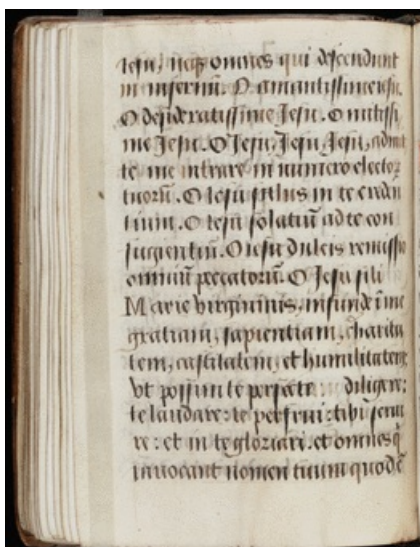 iesu, neqȝ omnes qui descendunt
in infernū. O amantissime iesu.
O desideratissime Jesu. O mitissi
me Jesu. O Jesu, Jesu, Jesu, admit
te me intrare in numero electoꝝ
tuorū. O iesu salus in te creden
tium. O iesu solatiū ad te con
fugientiū. O iesu dulcis remissio
omniū peccatorū. O Jesu fili
Marie virginis, infunde ī me
gratiam, sapientiam, charita
tem, castitatem, et humilitatem
vt possim te perfecte diligere:
te laudare: te perfrui: tibi serui
re: et in te gloriari. et omnes q̇
inuocant nomen tuum quod ē